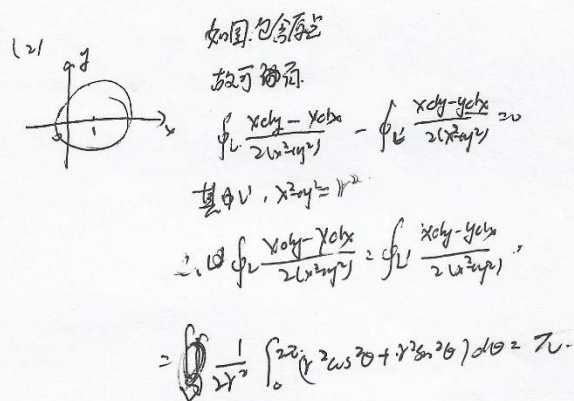 (2)
y
x
1
如图.包含原点
故可得
∮_L (xdy - ydx)/(2(x²+y²)) - ∮_L' (xdy-ydx)/(2(x²+y²)) = 0
其中L', x²+y² = r²
∴ ∮_L (xdy-ydx)/(2(x²+y²)) = ∮_L' (xdy-ydx)/(2(x²+y²)) ,
= 1/(2r²) ∫_0^{2π} (r²cos²θ + r²sin²θ) dθ = π.